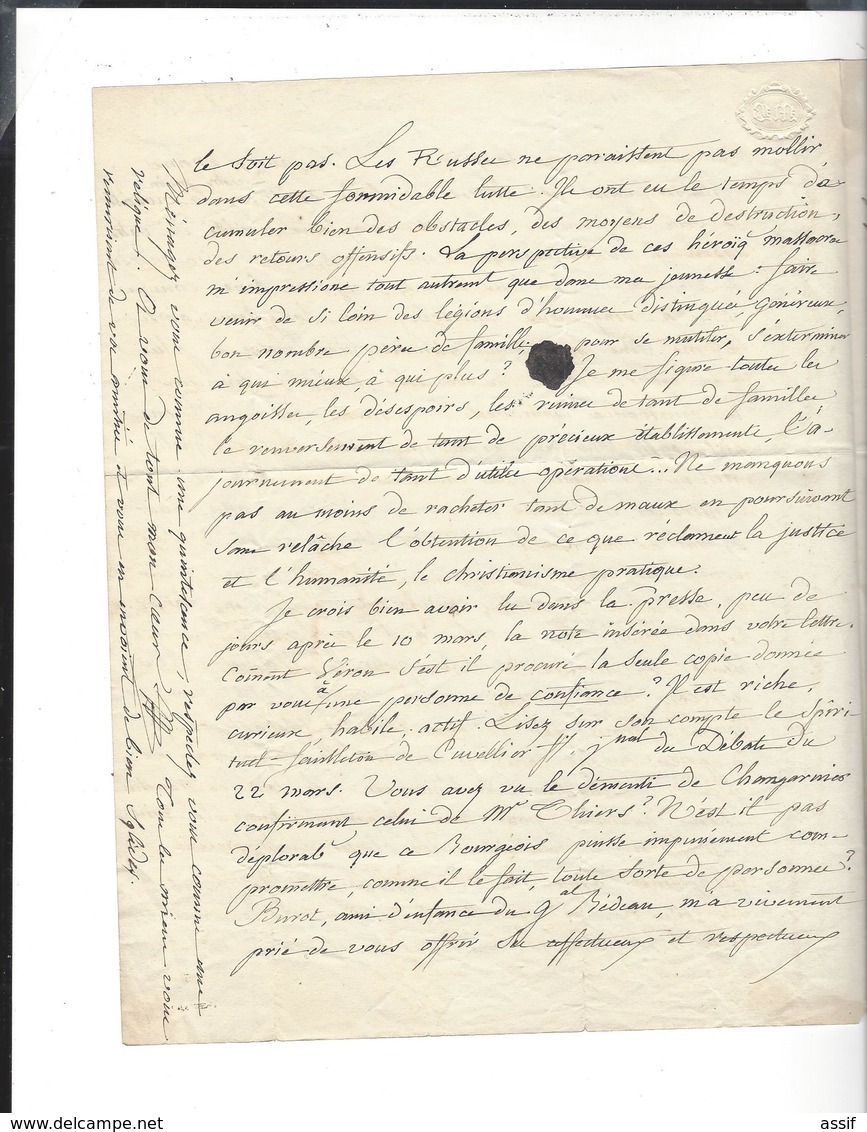 le soit pas. Les Russes ne paraissent pas mollir
dans cette formidable lutte. Ils ont eu le temps d'ac
cumuler bien des obstacles, des moyens de destruction,
des retours offensifs. La perspective de ces héroïq massacres
m'impressione tout autrement que dans ma jeunesse: faire
venir de si loin des légions d'hommes distingués, généreux,
bon nombre pères de famille, pour se mutiler, s'exterminer
à qui mieux, à qui plus? Je me figure toutes les
angoisses, les désespoirs, les ruines de tant de familles
le renversement de tant de précieux établissements, l'a-
journement de tant d'utiles opérations... Ne manquons
pas au moins de racheter tant de maux en poursuivant
sans relâche l'obtention de ce que réclament la justice
et l'humanité, le christianisme pratique.
Je crois bien avoir lu dans la Presse, peu de
jours après le 10 mars, la note insérée dans votre lettre.
Coment Véron s'est il procuré la seule copie donnée
par vous à une personne de confiance? Il est riche,
curieux, habile, actif. Lisez sur son compte le spiri
tuel feuilleton de Cuvellier fy, jnal du Débats du
22 mars. Vous avez vu le démenti de Changarnier
confirmant celui de Mr Thiers? N'est il pas
déplorab que ce Bourgeois puisse impunément com-
promettre, comme il le fait, toute sorte de personnes?
Burot, ami d'enfance du gal Bédeau, m'a vivement
prié de vous offrir ses affectueux et respectueux
Ménagez vous comme une quintessence, respectez vous comme une
relique. A vous de tout mon cœur Tous les miens vous
remercient de vos amitiés et vous en envoient de bien